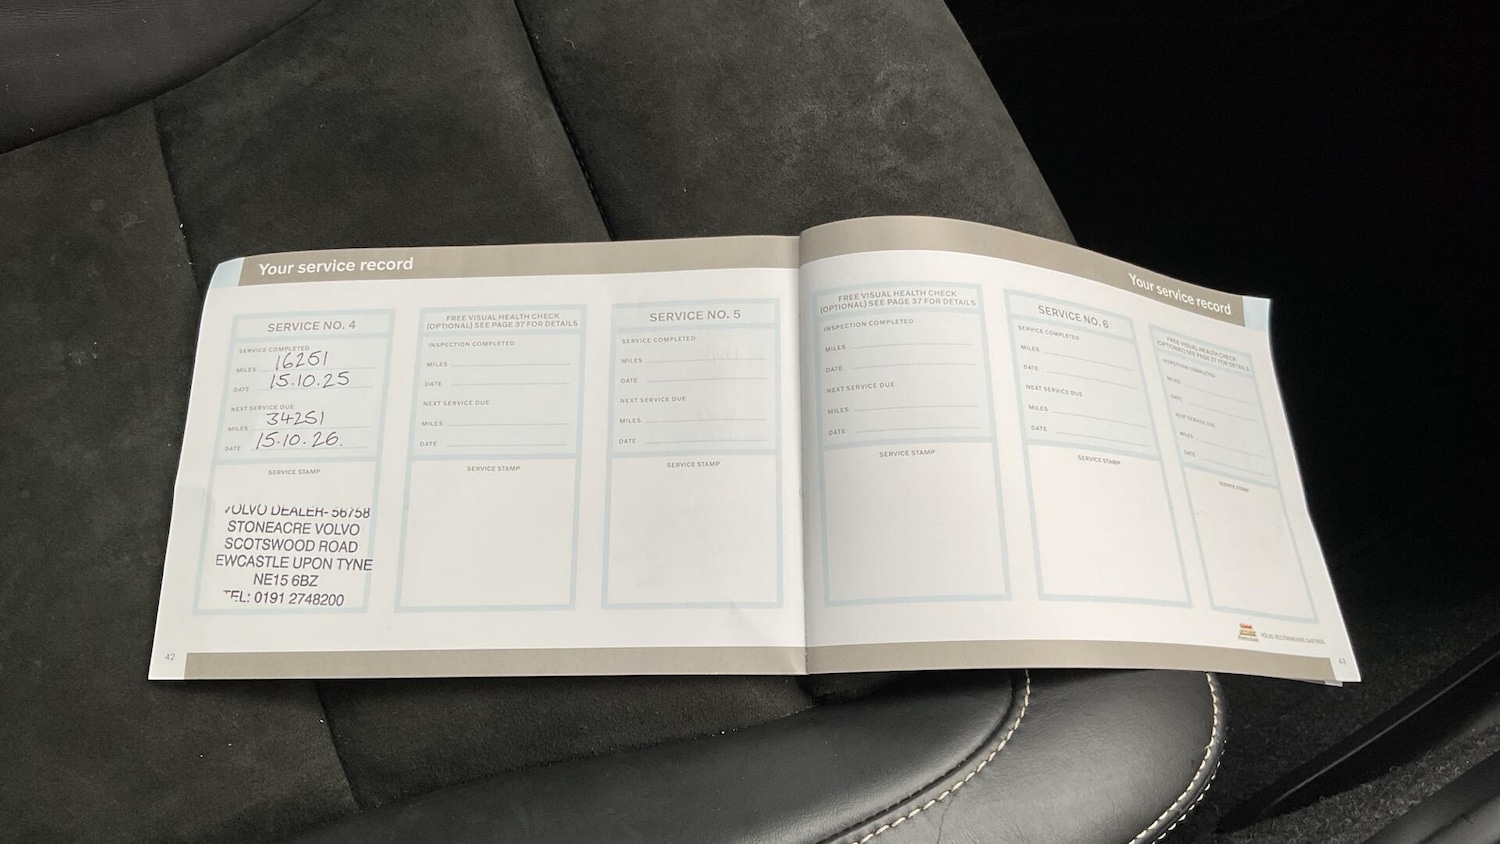 Your service record
SERVICE NO. 4
SERVICE COMPLETED
MILES 16251
DATE 15.10.25
NEXT SERVICE DUE
MILES 34251
DATE 15.10.26.
SERVICE STAMP
VOLVO DEALER- 56758
STONEACRE VOLVO
SCOTSWOOD ROAD
EWCASTLE UPON TYNE
NE15 6BZ
TEL: 0191 2748200
FREE VISUAL HEALTH CHECK
(OPTIONAL) SEE PAGE 37 FOR DETAILS
INSPECTION COMPLETED
MILES
DATE
NEXT SERVICE DUE
MILES
DATE
SERVICE STAMP
SERVICE NO. 5
SERVICE COMPLETED
MILES
DATE
NEXT SERVICE DUE
MILES
DATE
SERVICE STAMP
42
Your service record
FREE VISUAL HEALTH CHECK
(OPTIONAL) SEE PAGE 37 FOR DETAILS
INSPECTION COMPLETED
MILES
DATE
NEXT SERVICE DUE
MILES
DATE
SERVICE STAMP
SERVICE NO. 6
SERVICE COMPLETED
MILES
DATE
NEXT SERVICE DUE
MILES
DATE
SERVICE STAMP
FREE VISUAL HEALTH CHECK
(OPTIONAL) SEE PAGE 37 FOR DETAILS
INSPECTION COMPLETED
MILES
DATE
NEXT SERVICE DUE
MILES
DATE
SERVICE STAMP
VOLVO RECOMMENDS CASTROL
43